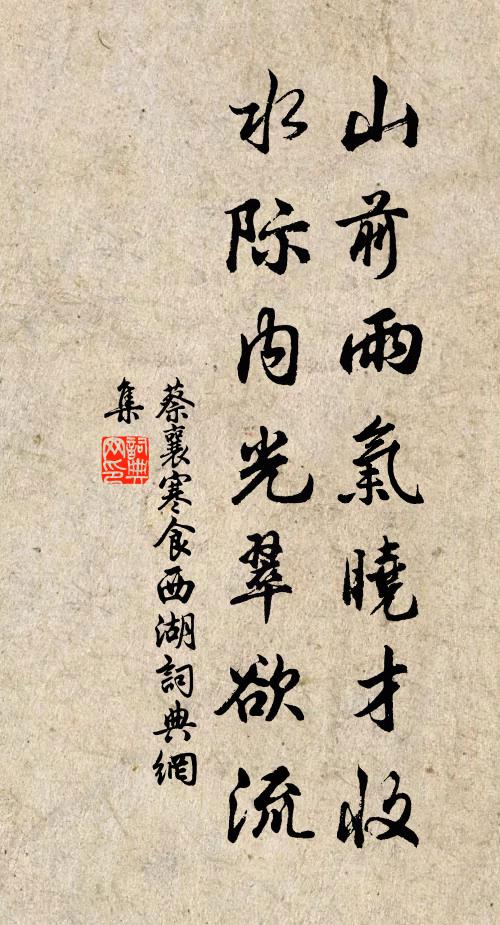 山前雨氣曉才收
水际内光翠欲流
蔡襄寒食西湖詞典網
集
詞典網印